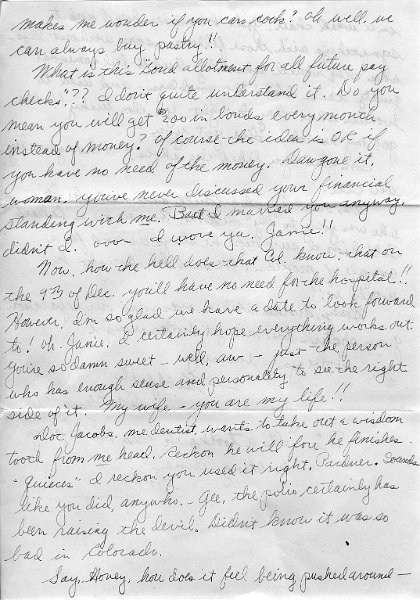 makes me wonder if you can cook? Oh well, we
can always buy pastry!!
What is this "bond allotment for all future pay
checks"?? I don't quite understand it. Do you
mean you will get 200 in bonds every month
instead of money? Of course the idea is OK if
you have no need of the money. Dawgone it,
woman, you've never discussed your financial
standing with me. But I married you anyway,
didn't I. I love ya, Janie!!
Now, how the hell does that Col. know that on
the 9th of Dec. you'll have no need for the hospital!!
However, I'm so glad we have a date to look forward
to! Oh, Janie, I certainly hope everything works out.
You're so damn sweet - well, aw - just the person
who has enough sense and personality to see the right
side of it. My wife - you are my life!!
Doc Jacobs, me dentist, wants to take out a wisdom
tooth from me head. Reckon he will fore he finishes.
"quieces" I reckon you used it right, Pardner. Sounds
like you did, anywho. - Gee, the polio certainly has
been raising the devil. Didn't know it was so
bad in Colorado.
Say, Honey, how does it feel being pushed around -